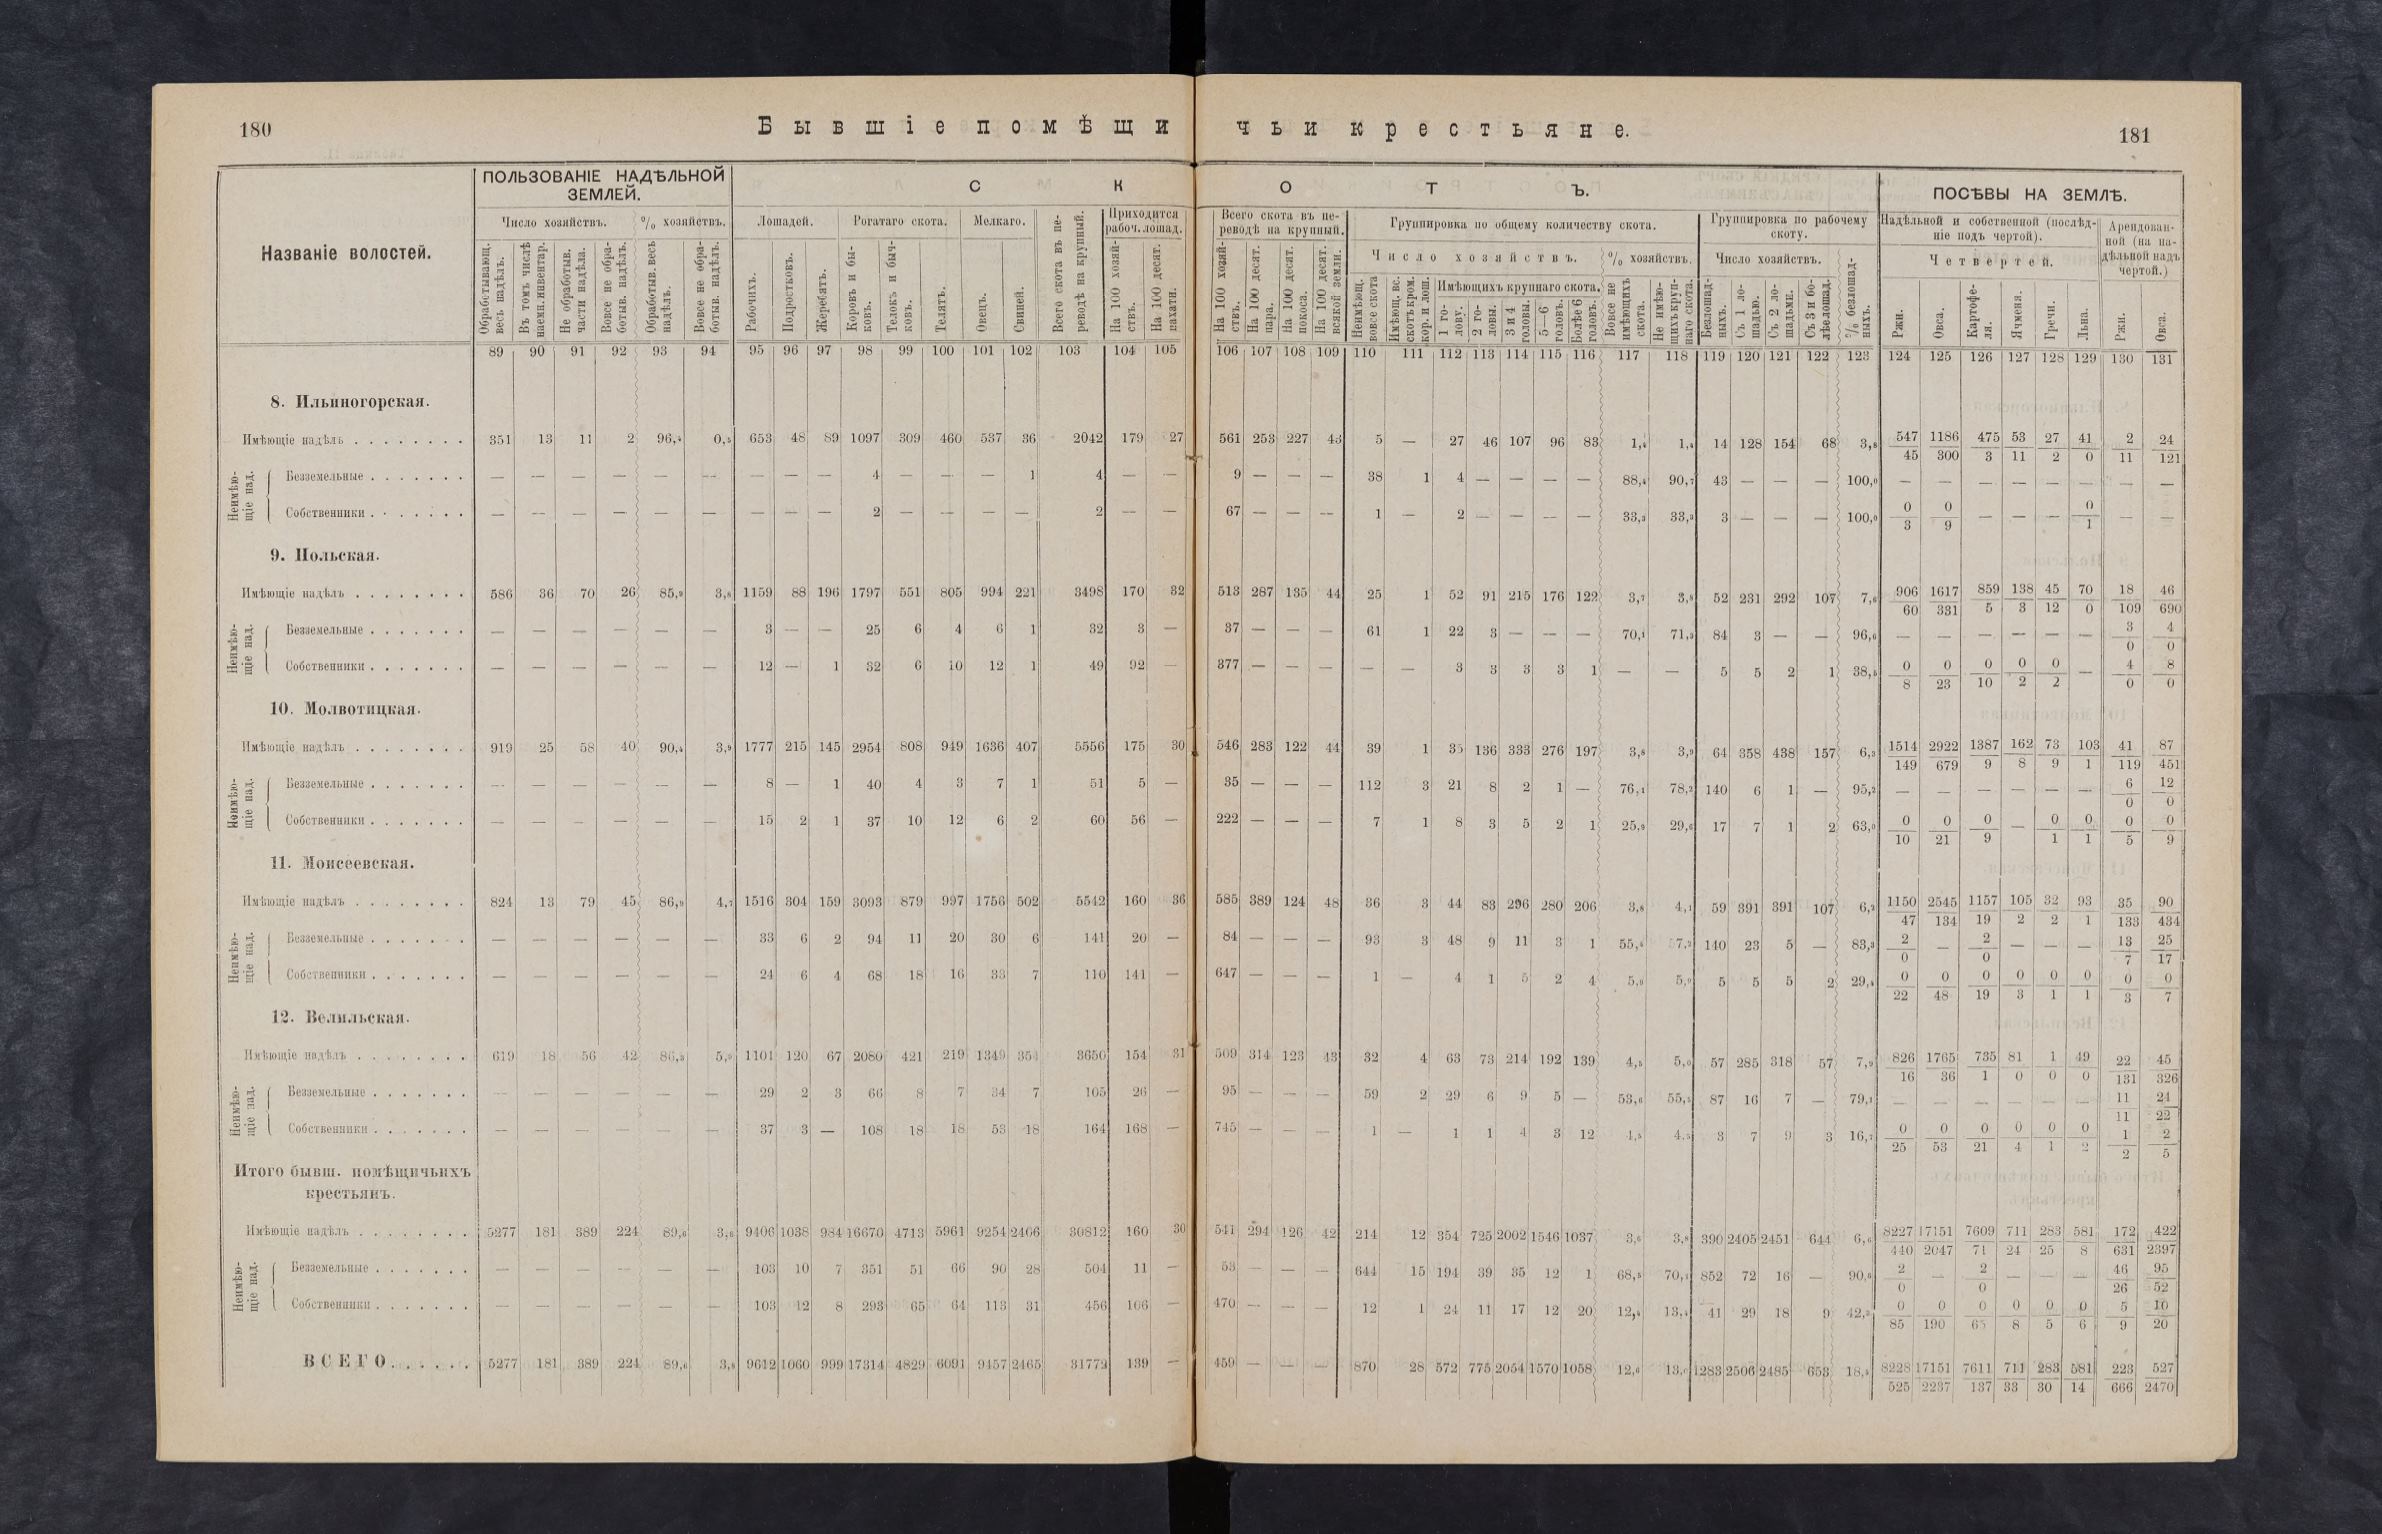 180
Бывшіе помѣщи
чьи крестьяне.
181
Названіе волостей.
ПОЛЬЗОВАНІЕ НАДѢЛЬНОЙ ЗЕМЛЕЙ.
С К О Т Ъ.
ПОСѢВЫ НА ЗЕМЛѢ.
Число хозяйствъ. % хозяйствъ. Лошадей. Рогатаго скота. Мелкаго. Приходится рабоч. лошад.
Всего скота въ переводѣ на крупный. Группировка по общему количеству скота. Группировка по рабочему скоту. Надѣльной и собственной (послѣдніе подъ чертой). Арендованной (на надѣльной надъ чертой.)
Число хозяйствъ. % хозяйствъ. Число хозяйствъ. Четвертей.
Имѣющихъ крупнаго скота.
Обрабатывающ. весь надѣлъ. Въ томъ числѣ наемн. инвентар. Не обработыв. части надѣла. Вовсе не обработыв. надѣлъ. Обработыв. весь надѣлъ. Вовсе не обработыв. надѣлъ. Рабочихъ. Подростковъ. Жеребятъ. Коровъ и быковъ. Телокъ и бычковъ. Телятъ. Овецъ. Свиней. Всего скота въ переводѣ на крупный. На 100 хозяйствъ. На 100 десят. пахати.
На 100 хозяйствъ. На 100 десят. пара. На 100 десят. покоса. На 100 десят. всякой земли. Неимѣющ. вовсе скота Имѣющ. вс. скотъ кром. кор. и лош. 1 голову. 2 головы. 3 и 4 головы. 5—6 головъ. Болѣе 6 головъ. Вовсе не имѣющихъ скота. Не имѣющихъ крупнаго скота. Безлошадныхъ. Съ 1 лошадью. Съ 2 лошадьми. Съ 3 и болѣе лошад. % безлошадныхъ. Ржи. Овса. Картофеля. Ячменя. Гречи. Льна. Ржи. Овса.
89 90 91 92 93 94 95 96 97 98 99 100 101 102 103 104 105 106 107 108 109 110 111 112 113 114 115 116 117 118 119 120 121 122 123 124 125 126 127 128 129 130 131
8. Ильиногорская.
Имѣющіе надѣлъ . . . . . . . . 351 13 11 2 96,4 0,5 653 48 89 1097 309 460 537 36 2042 179 27 561 253 227 43 5 — 27 46 107 96 83 1,4 1,4 14 128 154 68 3,8 547 1186 475 53 27 41 2 24
45 300 3 11 2 0 11 121
Неимѣющіе над.
Безземельные . . . . . . . — — — — — — — — — 4 — — — 1 4 — — 9 — — — 38 1 4 — — — — 88,4 90,7 43 — — — 100,0 — — — — — — — —
Собственники . . . . . . . — — — — — — — — — 2 — — — — 2 — — 67 — — — 1 — 2 — — — — 33,3 33,3 3 — — — 100,0 0 0 — — — 0 — —
3 9 1
9. Польская.
Имѣющіе надѣлъ . . . . . . . . 586 36 70 26 85,9 3,8 1159 88 196 1797 551 805 994 221 3498 170 32 513 287 135 44 25 1 52 91 215 176 122 3,7 3,8 52 231 292 107 7,6 906 1617 859 138 45 70 18 46
60 331 5 3 12 0 109 690
Неимѣющіе над.
Безземельные . . . . . . . — — — — — — 3 — — 25 6 4 6 1 32 3 — 37 — — — 61 1 22 3 — — — 70,1 71,3 84 3 — — 96,6 — — — — — — 3 4
0 0
Собственники . . . . . . . — — — — — — 12 — 1 32 6 10 12 1 49 92 — 377 — — — — — 3 3 3 3 1 — — 5 5 2 1 38,5 0 0 0 0 0 — 4 8
8 23 10 2 2 0 0
10. Молвотицкая.
Имѣющіе надѣлъ . . . . . . . . 919 25 58 40 90,4 3,9 1777 215 145 2954 808 949 1636 407 5556 175 30 546 283 122 44 39 1 35 136 333 276 197 3,8 3,9 64 358 438 157 6,3 1514 2922 1387 162 73 103 41 87
149 679 9 8 9 1 119 451
Неимѣющіе над.
Безземельные . . . . . . . — — — — — — 8 — 1 40 4 3 7 1 51 5 — 35 — — — 112 3 21 8 2 1 — 76,1 78,2 140 6 1 — 95,2 — — — — — — 6 12
0 0
Собственники . . . . . . . — — — — — — 15 2 1 37 10 12 6 2 60 56 — 222 — — — 7 1 8 3 5 2 1 25,9 29,6 17 7 1 2 63,0 0 0 0 — 0 0 0 0
10 21 9 1 1 5 9
11. Моисеевская.
Имѣющіе надѣлъ . . . . . . . . 824 13 79 45 86,9 4,7 1516 304 159 3093 879 997 1756 502 5542 160 36 585 389 124 48 36 3 44 83 296 280 206 3,8 4,1 59 391 391 107 6,2 1150 2545 1157 105 32 93 35 90
47 134 19 2 2 1 133 434
Неимѣющіе над.
Безземельные . . . . . . . — — — — — — 33 6 2 94 11 20 30 6 141 20 — 84 — — — 93 3 48 9 11 3 1 55,4 57,2 140 23 5 — 83,3 2 — 2 — — — 13 25
0 0 7 17
Собственники . . . . . . . — — — — — — 24 6 4 68 18 16 33 7 110 141 — 647 — — — 1 — 4 1 5 2 4 5,9 5,9 5 5 5 2 29,4 0 0 0 0 0 0 0 0
22 48 19 3 1 1 3 7
12. Велильская.
Имѣющіе надѣлъ . . . . . . . . 619 18 56 42 86,3 5,9 1101 120 67 2080 421 219 1349 354 3650 154 31 509 314 123 43 32 4 63 73 214 192 139 4,5 5,0 57 285 318 57 7,9 826 1765 735 81 1 49 22 45
16 36 1 0 0 0 131 326
Неимѣющіе над.
Безземельные . . . . . . . — — — — — — 29 2 3 66 8 7 34 7 105 26 — 95 — — — 59 2 29 6 9 5 — 53,6 55,5 87 16 7 — 79,1 — — — — — — 11 24
11 22
Собственники . . . . . . . — — — — — — 37 3 — 108 18 18 53 18 164 168 — 745 — — — 1 — 1 1 4 3 12 4,5 4,5 3 7 9 3 16,7 0 0 0 0 0 0 1 2
25 53 21 4 1 2 2 5
Итого бывш. помѣщичьихъ
крестьянъ.
Имѣющіе надѣлъ . . . . . . . . 5277 181 389 224 89,6 3,8 9406 1038 984 16670 4713 5961 9254 2406 30812 160 30 541 294 126 42 214 12 354 725 2002 1546 1037 3,6 3,8 390 2405 2451 644 6,6 8227 17151 7609 711 283 581 172 422
440 2047 71 24 25 8 631 2397
Неимѣющіе над.
Безземельные . . . . . . . — — — — — — 103 10 7 351 51 66 90 28 504 11 — 53 — — — 644 15 194 39 35 12 1 68,5 70,1 852 72 16 — 90,6 2 — 2 — — — 46 95
0 0 26 52
Собственники . . . . . . . — — — — — — 103 12 8 293 65 64 113 31 456 106 — 470 — — — 12 1 24 11 17 12 20 12,4 13,4 41 29 18 9 42,3 0 0 0 0 0 0 5 10
85 190 65 8 5 6 9 20
ВСЕГО . . . . . . 5277 181 389 224 89,6 3,8 9612 1060 999 17314 4829 6091 9457 2465 31772 139 — 459 — — — 870 28 572 775 2054 1570 1058 12,6 13,0 1283 2506 2485 653 18,5 8228 17151 7611 711 283 581 223 527
525 2237 137 33 30 14 666 2470